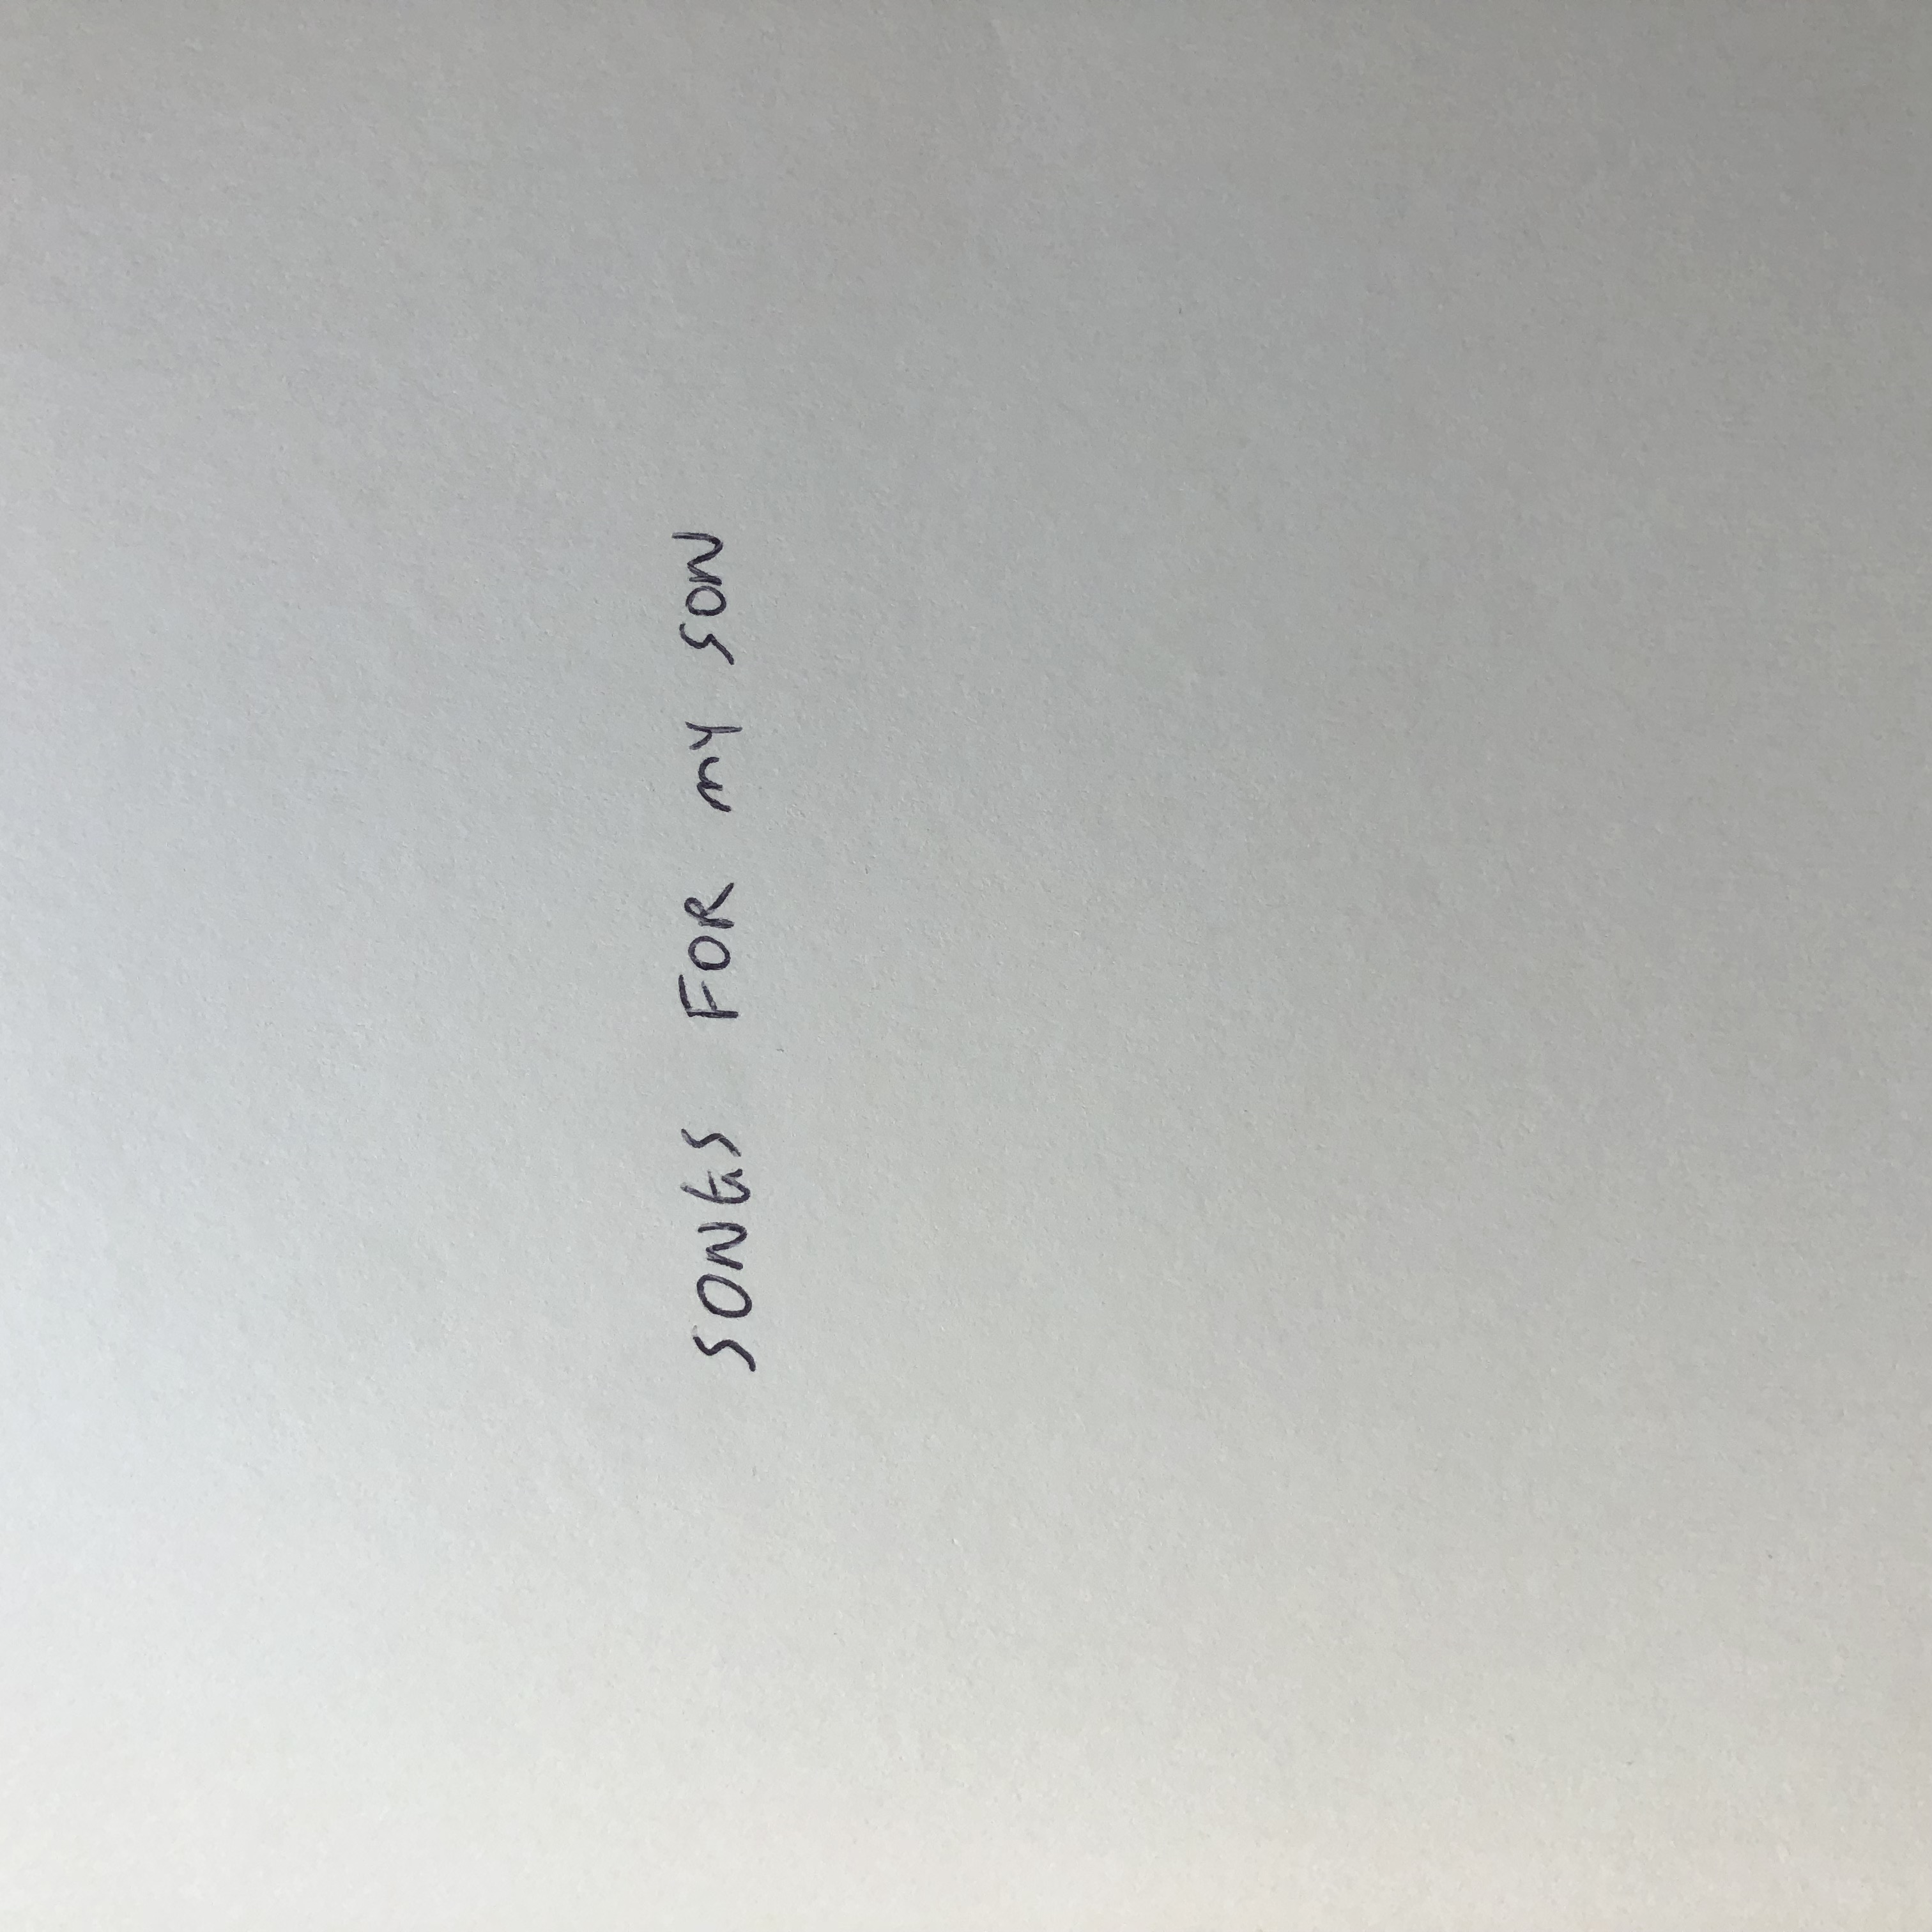 SONGS FOR MY SON